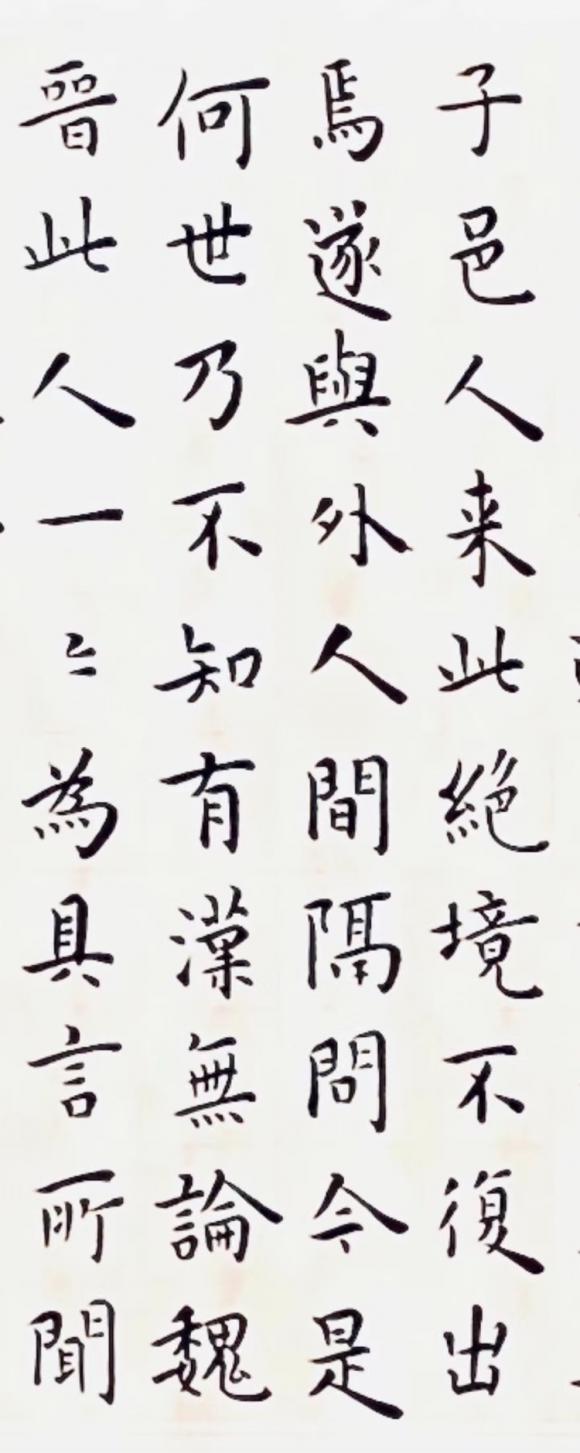 子邑人来此絕境不復出
焉遂與外人間隔問今是
何世乃不知有漢無論魏
晉此人一〻為具言所聞